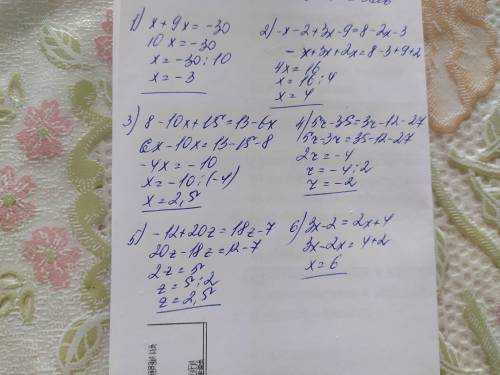 1) x + 9x = -30
10x = -30
x = -30 : 10
x = -3
2) -x - 2 + 3x - 9 = 8 - 2x - 3
-x + 3x + 2x = 8 - 3 + 9 + 2
4x = 16
x = 16 : 4
x = 4
3) 8 - 10x + 15 = 13 - 6x
6x - 10x = 13 - 15 - 8
-4x = -10
x = -10 : (-4)
x = 2,5
4) 5r - 35 = 3r - 12 - 27
5r - 3r = 35 - 12 - 27
2r = -4
r = -4 : 2
r = -2
5) -12 + 20z = 18z - 7
20z - 18z = 12 - 7
2z = 5
z = 5 : 2
z = 2,5
6) 3x - 2 = 2x + 4
3x - 2x = 4 + 2
x = 6